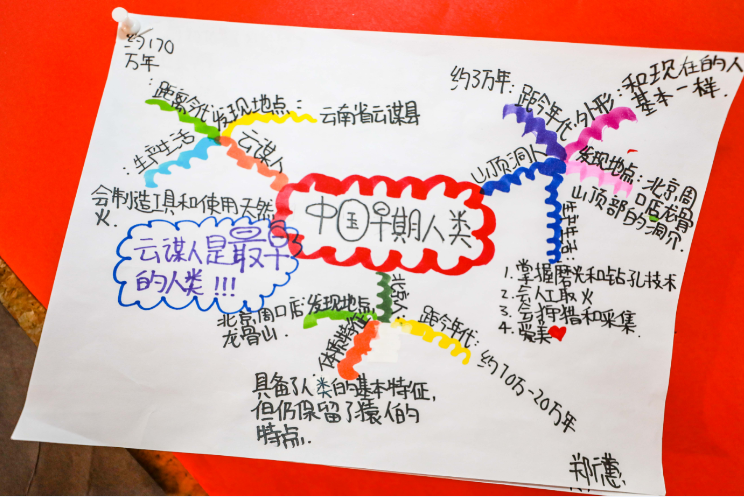 约170
万年
距离今代
发现地点：
云南省云谋县
生产生活：
云谋人
会制造工具和使用天然
火.
云谋人是最早
的人类!!!
中国早期人类
约3万年：
距今年代
外形：
和现在的人
基本一样.
山顶洞人
发现地点：北京周
口店龙骨
山顶部的洞穴
1. 掌握磨光和钻孔技术
2. 会人工取火
3. 会狩猎和采集
4. 爱美
北京人：
发现地点
北京周口店
龙骨山.
体质特征
距今年代：
约70万-20万年
具备了人类的基本特征,
但仍保留了猿人的
特点.